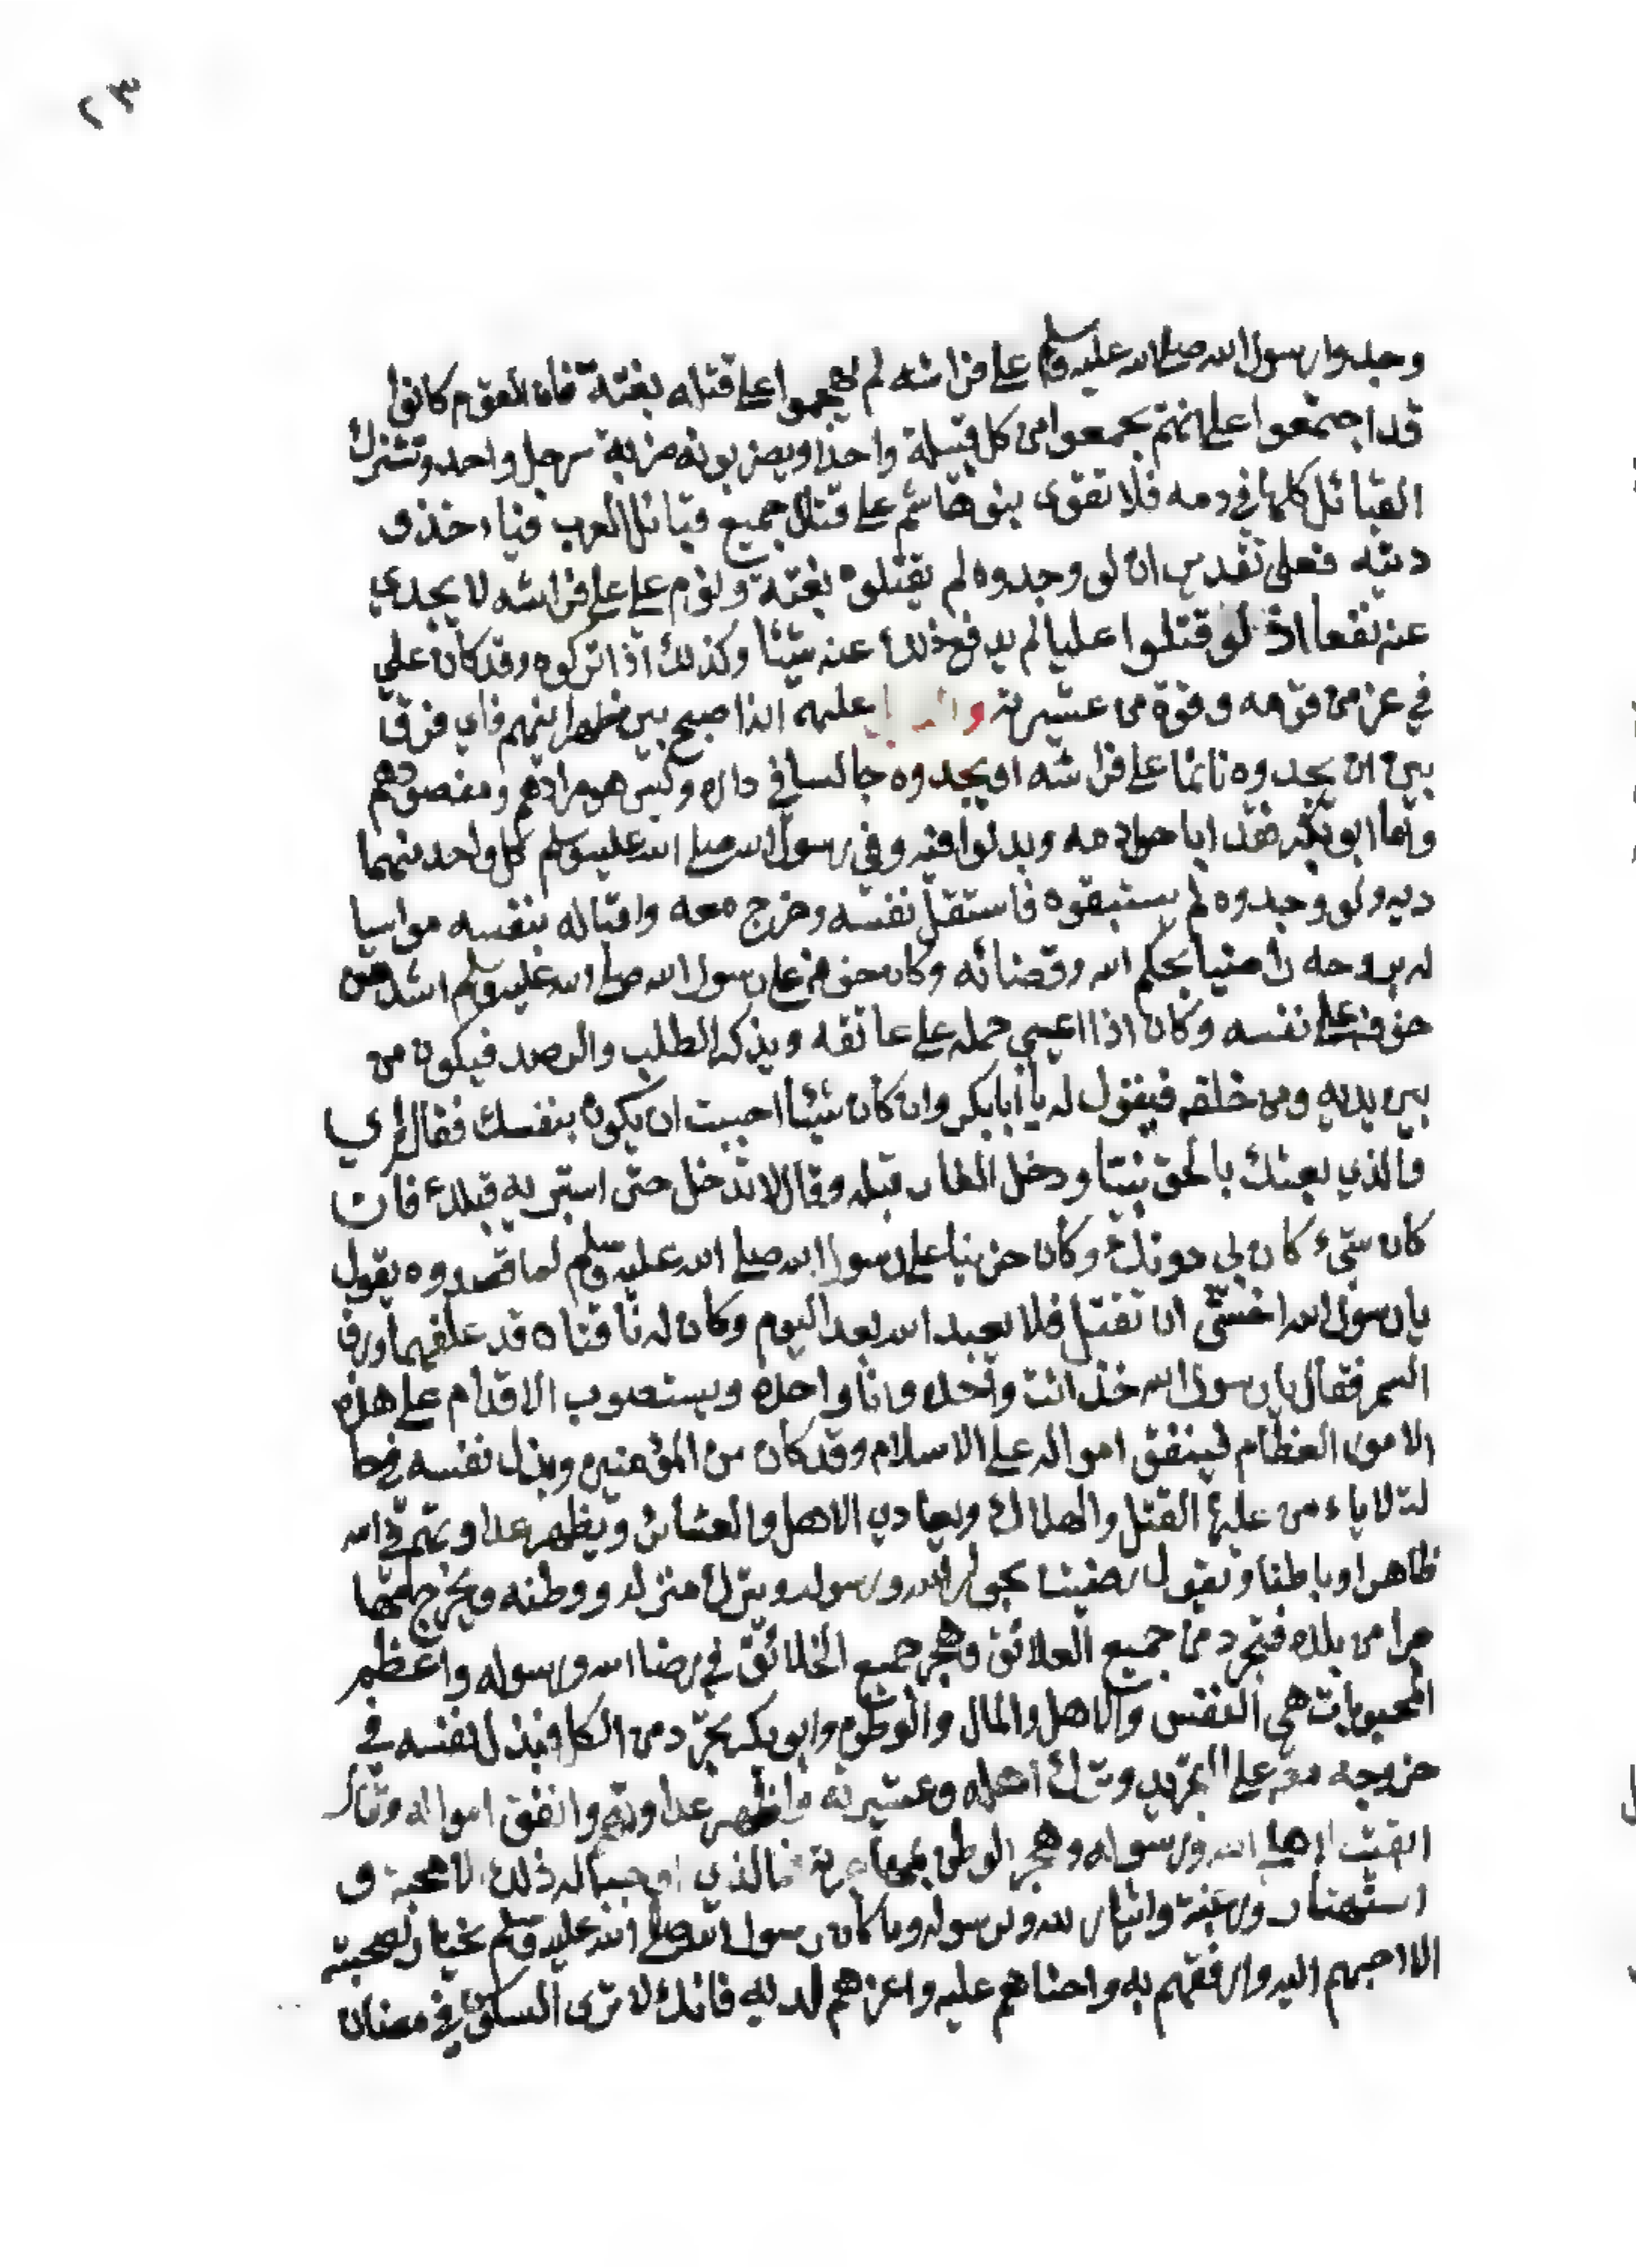 ٢٣
وجدوا رسول الله صلى الله عليه وسلم على فراشه لم يهجموا على قتله بغتة فان القوم كانوا
قد اجتمعوا على انهم يجمعوا من كل قبيلة واحدا ويضربونه ضربة رجل واحد وتشترك
القبائل كلها في دمه فلا تقوى بنو هاشم على قتال جميع قبائل العرب فياءخذون
ديته فعلى تقدير ان لو وجدوه لم يقتلوه بغتة ونوم علي على فراشه لا يجدي
عنه نفعا اذ لو قتلوا عليا لم يدفع ذلك عنه شيئا وكذلك اذا تركوه وقد كان علي
في عز من قومه وقوة من عشيرته عليه اذا اصبح بين ظهرانيهم فاي فرق
بين ان يجدوه نائما على فراشه او يجدوه جالسا في داره وليس هو مرادهم ومقصودهم
واما ابو بكر فقد اباحوا دمه وبذلوا فيه وفي رسول الله صلى الله عليه وسلم كل واحد منهما
ديه ولو وجدوه لم يستبقوه فاستقل نفسه وخرج معه واقباله بنفسه مواسيا
له بروحه راضيا بحكم الله وقضائه وكان حزنه على رسول الله صلى الله عليه وسلم اشد من
حزنه على نفسه وكان اذا اعيى حمله على عاتقه ويذكر الطلب والرصد فيكون من
بين يديه ومن خلفه فيقول له يا أبا بكر وان كان شيئا احببت ان يكون بنفسك فقال اي
والذي بعثك بالحق نبيا ودخل الغار قبله وقال لا تدخل حتى استبريه قبلك فان
كان شيء كان لي دونك وكان حزينا على رسول الله صلى الله عليه وسلم لما قصدوه يقول
يا رسول الله اخشى ان تقتل فلا يعبد الله بعد اليوم وكان له ناقتاه قد علفهما ورق
السمر فقال يا رسول الله خذ انت واحده وانا واحده ويستصوب الاقدام على هذه
الامور العظام لينفق امواله على الاسلام وقد كان من المؤمنين وبذل نفسه في حا
لة لا ياءمن عليها القتل والهلاك ويعادي الاهل والعشائر ويظهر عداوتهم في الله
ظاهرا وباطنا ويقول رضينا بحول الله ورسوله ويترك منزله ووطنه ويخرج
من بلده فتجرد من جميع العلائق وهجر جميع الخلائق في رضا الله ورسوله واعظم
المحبوبات هي النفس والاهل والمال والوطن وابو بكر تجرد من الكل فبذل نفسه في
خروجه معه على وترك اهله وعشيرته واظهر عداوتهم وانفق امواله وقال
ابقيت لاهلي الله ورسوله وهجر الوطن فما الذي اوجب له ذلك الا محبة و
ورغبة وايثار لله ولرسوله وما كان رسول الله صلى الله عليه وسلم يختار لصحبته
الا احبهم اليه وارفقهم به واحناهم عليه واعزهم لديه فانك لا ترى السكون في مضنان